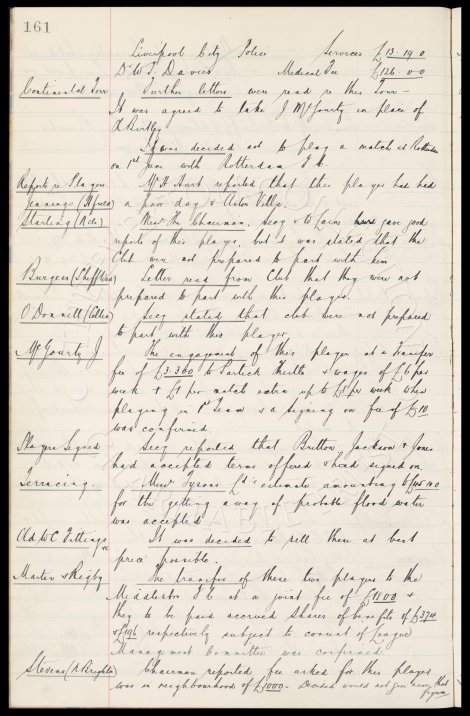 161
Liverpool City Police Services £13.19.0
Dr W. J. Davies Medical Fee £126.0.0
Continental Tour Further letters were read re this Tour -
It was agreed to take J McGourty in place of
It was decided not to play a match at Rotterdam
on 1st June with Rotterdam F.C.
Reports re Players Mr H. Hart reported that this player had had
Jennings a poor day v Aston Villa.
Starling Chairman, Secy gave good
reports of this player, but it was stated that the
Club were not prepared to part with him
Burgess Letter read from Club that they were not
prepared to part with this player.
O'Donnell (Celtic) Secy stated that club were not prepared
to part with this player
McGourty J. The engagement of this player at a transfer
fee of £3.300 to Partick Thistle & wages of £6 per
week & £1 per match extra up to £8 per week when
playing in 1st Team & a signing on fee of £10
was confirmed.
Players Signed Secy reported that Britton, Jackson & Jones
had accepted terms offered & had signed on.
Terracing. Messrs Tysons Ld's estimate amounting to
for the getting away of probable flood water
was accepted
Old W.C. Fittings It was decided to sell them at best
price possible.
Martin & Rigby The transfer of these two players to the
Middlesbro F.C. at a joint fee of &
they to be paid accrued shares of benefits of £374
& £196 respectively subject to consent of League
Management Committee was confirmed.
Stevens Chairman reported fee asked for this player
was in neighbourhood of £1000. Decided would not go near that
figure.